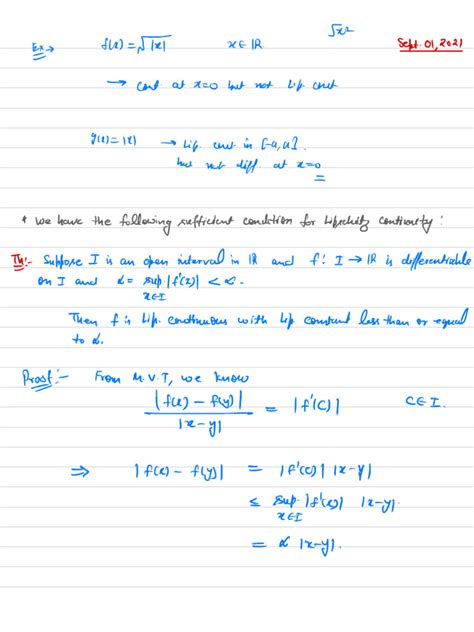 √x²
Ex → f(x) = √|x| x ∈ IR Sept. 01, 2021
→ cont at x=0 but not Lip. cont
g(x) = |x| → Lip. cont in [-a, a].
but not diff. at x=0
* We have the following sufficient condition for Lipschitz continuity :
Th:- Suppose I is an open interval in IR and f: I → IR is differentiable
on I and α = sup |f'(x)| < ∞.
x∈I
Then f is Lip. continuous with Lip constant less than or equal
to α.
Proof:- From M.V.T, we know
|f(x) - f(y)| / |x-y| = |f'(c)| C ∈ I.
⇒ |f(x) - f(y)| = |f'(c)| |x-y|
≤ sup |f'(x)| |x-y|.
x∈I
= α |x-y|.